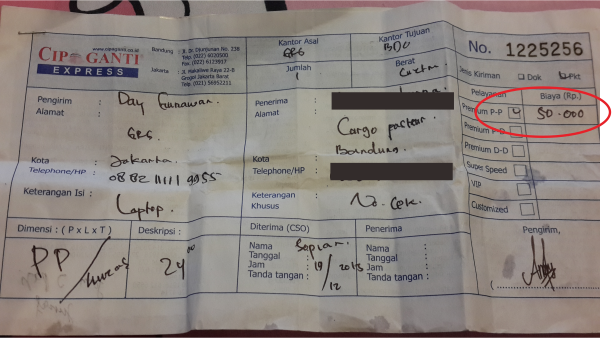 www.cipaganti.co.id
CIPAGANTI
EXPRESS
Bandung : Jl. Dr. Djundjunan No. 238
Telp. (022) 6020500
Fax. (022) 6123957
Jakarta : JL. Makaliwe Raya 22-B
Grogol Jakarta Barat
Telp. (021) 56952251
Kantor Asal
GRG
Kantor Tujuan
BDO
No. 1225256
Jumlah
1
Berat
Jenis Kiriman Dok Pkt
Pengirim : Day Gunawan.
Alamat
Penerima :
Alamat
Cargo pasteur.
Pelayanan Biaya (Rp.)
Premium P-P 50.000
Premium P-D
Premium D-D
Super Speed
VIP
Customized
Kota : Jakarta
Telephone/HP :
Kota : Bandung.
Telephone/HP :
Keterangan Isi : Laptop.
Keterangan
Khusus : No. Cek.
Dimensi : ( P x L x T )
PP
Deskripsi :
24
Diterima (CSO)
Nama : Sopian.
Tanggal : 19/12 2015
Jam :
Tanda tangan :
Penerima
Nama :
Tanggal :
Jam :
Tanda tangan :
Pengirim,